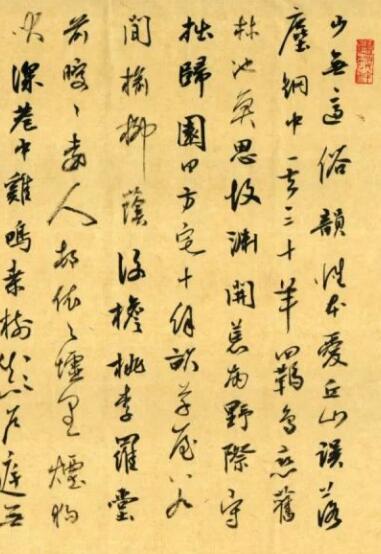 少無適俗韻性本愛丘山誤落
塵網中一去三十年羈鳥戀舊
林池魚思故淵開荒南野際守
拙歸園田方宅十餘畝草屋八九
間榆柳蔭後檐桃李羅堂
前曖〻遠人村依〻墟里煙狗
吠深巷中雞鳴桑樹顛戶庭無